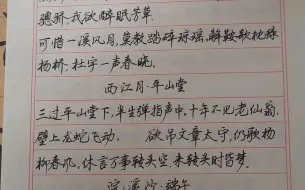 骢骄，我欲醉眠芳草。
可惜一溪风月，莫教踏碎琼瑶，解鞍欹枕绿
杨桥，杜宇一声春晓。
西江月·平山堂
三过平山堂下，半生弹指声中，十年不见老仙翁，
壁上龙蛇飞动。 欲吊文章太守，仍歌杨
柳春风，休言万事转头空，未转头时皆梦。
浣溪沙·端午